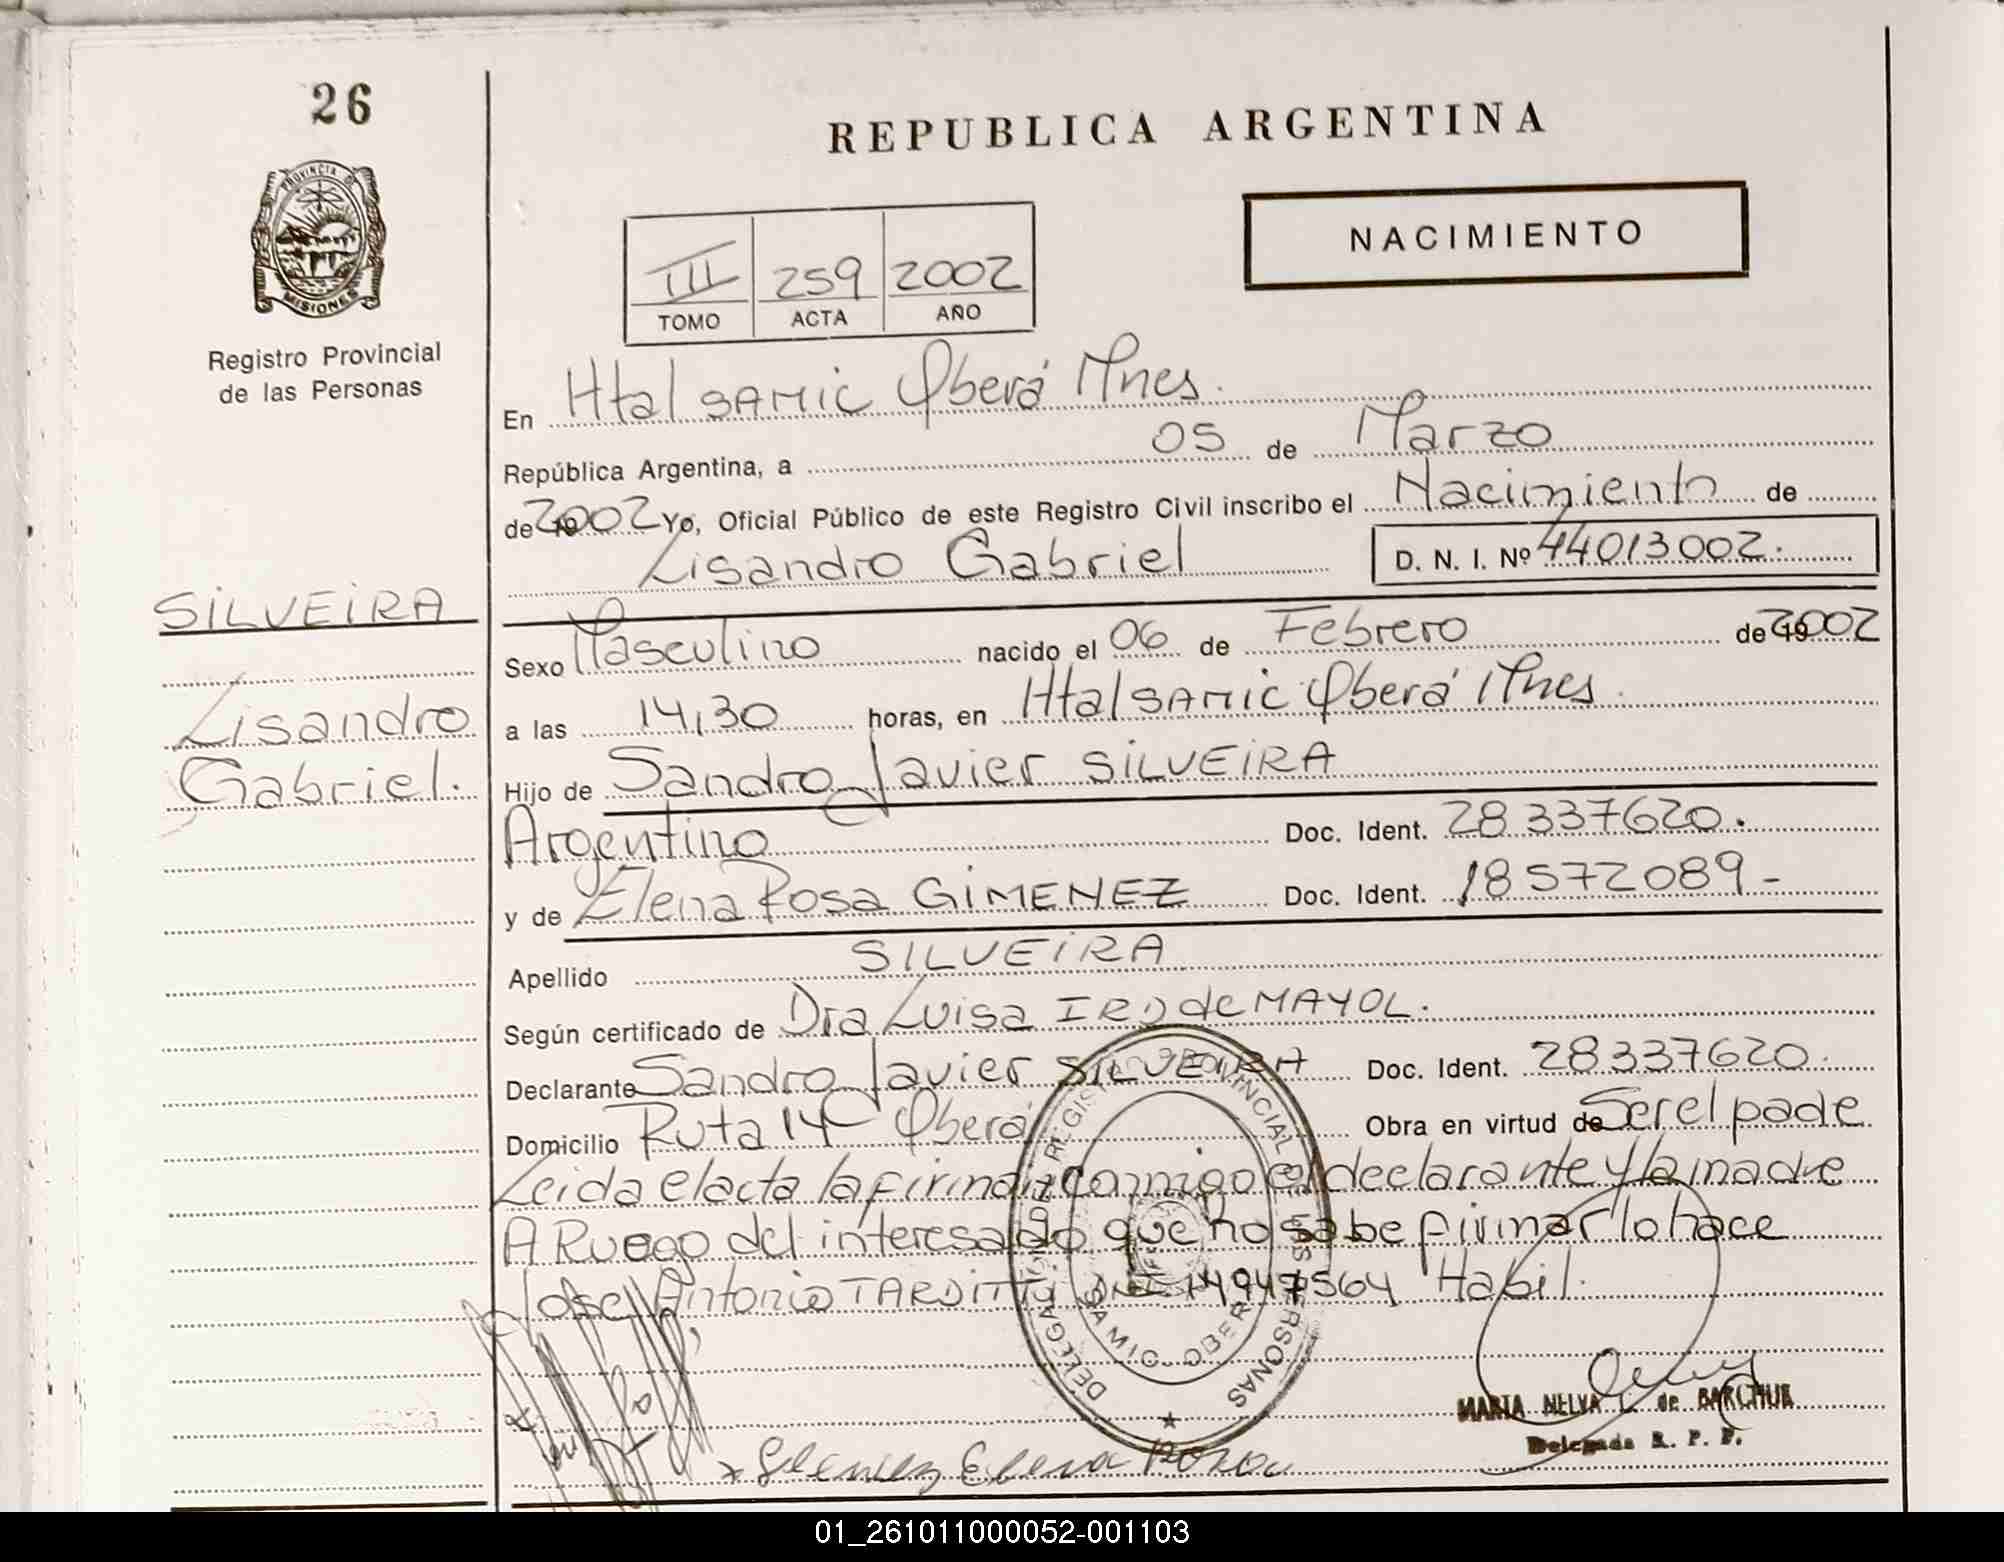 26
REPUBLICA ARGENTINA
PROVINCIA DE
MISIONES
NACIMIENTO
III 259 2002
TOMO ACTA AÑO
Registro Provincial
de las Personas
En Htal SAMIC Oberá Mnes.
República Argentina, a 05 de Marzo
de 2002 Yo, Oficial Público de este Registro Civil inscribo el Nacimiento de
Lisandro Gabriel D. N. I. Nº 44013002.
SILVEIRA
Lisandro
Gabriel.
Sexo Masculino nacido el 06 de Febrero de 2002
a las 14,30 horas, en Htal SAMIC Oberá Mnes.
Hijo de Sandro Javier SILVEIRA
Argentino Doc. Ident. 28337620.
y de Elena Rosa GIMENEZ Doc. Ident. 18572089-
Apellido SILVEIRA
Según certificado de Dra Luisa de MAYOL.
Declarante Sandro Javier SILVEIRA Doc. Ident. 28337620.
Domicilio Ruta 14 Oberá Obra en virtud de Ser el padre
Leida el acta la firman conmigo el declarante y la madre
A Ruego del interesado que no sabe firmar lo hace
Jose Antonio TARDITTY DNI 14947564 Habil.
REGISTRO PROVINCIAL DE LAS PERSONAS
DELEGACION
SAMIC OBERA
MARIA NELVA L. de BARCHUK
Delegada R. P. P.
x Gimenez Elena Rosa
01_261011000052-001103